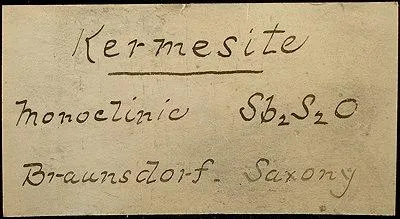 Kermesite
Monoclinic Sb₂S₂O
Braunsdorf. Saxony